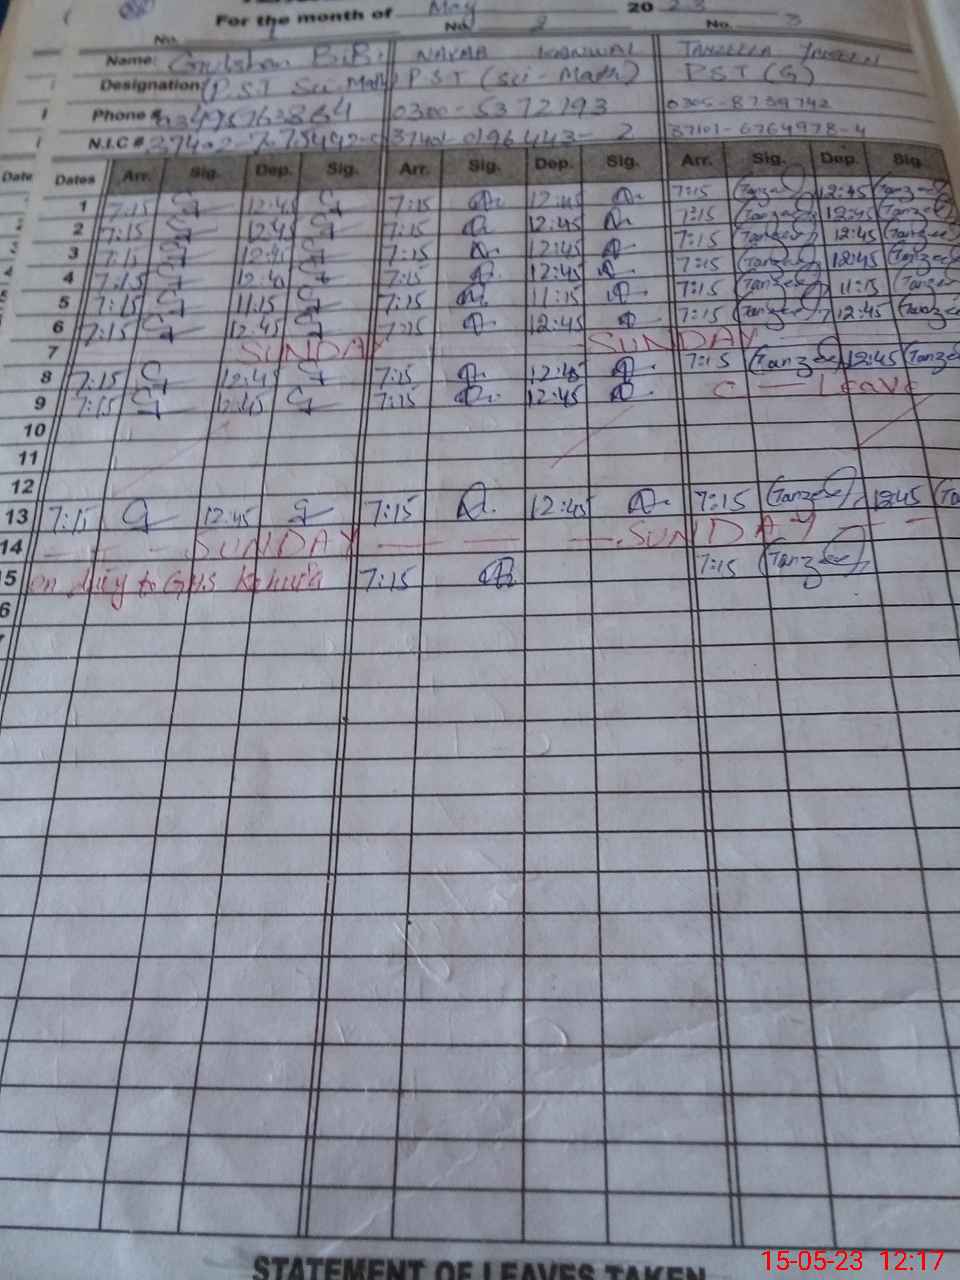 For the month of May 2023
No. 1 No. 2 No. 3
Name: Gulshan BiBi NAYMA KANWAL TANZEELA
Designation (PST Sci. Math) PST (Sci-Math) PST (G)
Phone # 0300-5372793 0305-8739742
N.I.C # 37101-6764978-4
Dates Arr. Sig. Dep. Sig. Arr. Sig. Dep. Sig. Arr. Sig. Dep. Sig.
1 7:15 12:45 7:15 12:45 7:15 (Tanzeela) 12:45 (Tanzeela)
2 7:15 12:45 7:15 12:45 7:15 (Tanzeela) 12:45 (Tanzeela)
3 7:15 12:45 7:15 12:45 7:15 (Tanzeela) 12:45 (Tanzeela)
4 7:15 12:45 7:15 12:45 7:15 (Tanzeela) 12:45 (Tanzeela)
5 7:15 11:15 7:15 11:15 7:15 (Tanzeela) 11:15 (Tanzeela)
6 7:15 12:45 7:15 12:45 7:15 (Tanzeela) 12:45 (Tanzeela)
7 SUNDAY SUNDAY
8 7:15 12:45 7:15 12:45 7:15 (Tanzeela) 12:45 (Tanzeela)
9 7:15 12:45 7:15 12:45 C - Leave
10
11
12
13 7:15 12:45 7:15 12:45 7:15 (Tanzeela) 12:45 (Ta
14 - - - SUNDAY - - - - SUNDAY - - -
15 on duty to GHS 7:15 7:15 (Tanzeela)
6
7
STATEMENT OF LEAVES TAKEN
15-05-23 12:17